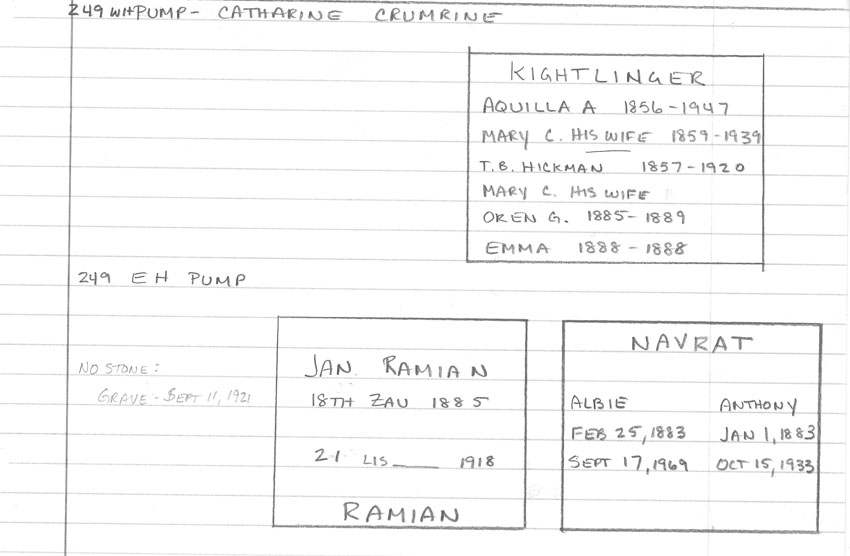 249 WH PUMP - CATHARINE CRUMRINE
KIGHTLINGER
AQUILLA A 1856-1947
MARY C. HIS WIFE 1859-1939
T.B. HICKMAN 1857-1920
MARY C. HIS WIFE
OREN G. 1885-1889
EMMA 1888-1888
249 EH PUMP
NO STONE:
GRAVE - SEPT 11, 1921
JAN RAMIAN
18TH ZAU 1885
21 LIS____ 1918
RAMIAN
NAVRAT
ALBIE ANTHONY
FEB 25, 1883 JAN 1, 1883
SEPT 17, 1969 OCT 15, 1933